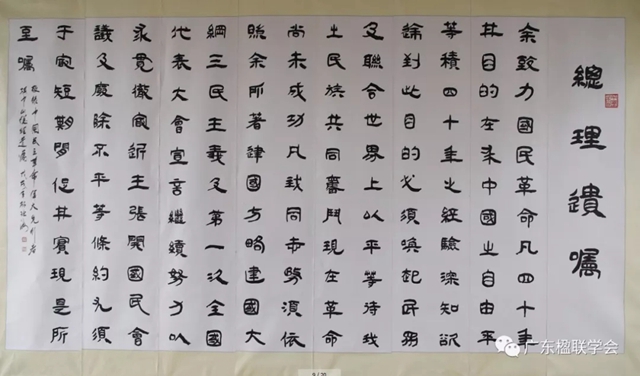 總理遺囑
余致力國民革命凡四十年
其目的在求中國之自由平
等積四十年之經驗深知欲
達到此目的必須喚起民眾
及聯合世界上以平等待我
之民族共同奮鬥現在革命
尚未成功凡我同志務須依
照余所著建國方略建國大
綱三民主義及第一次全國
代表大會宣言繼續努力以
求貫徹最近主張開國民會
議及廢除不平等條約尤須
于最短期間促其實現是所
至囑
敬錄中國民主革命偉大先行者
孫中山總理遺囑
广东楹联学会
9 / 20